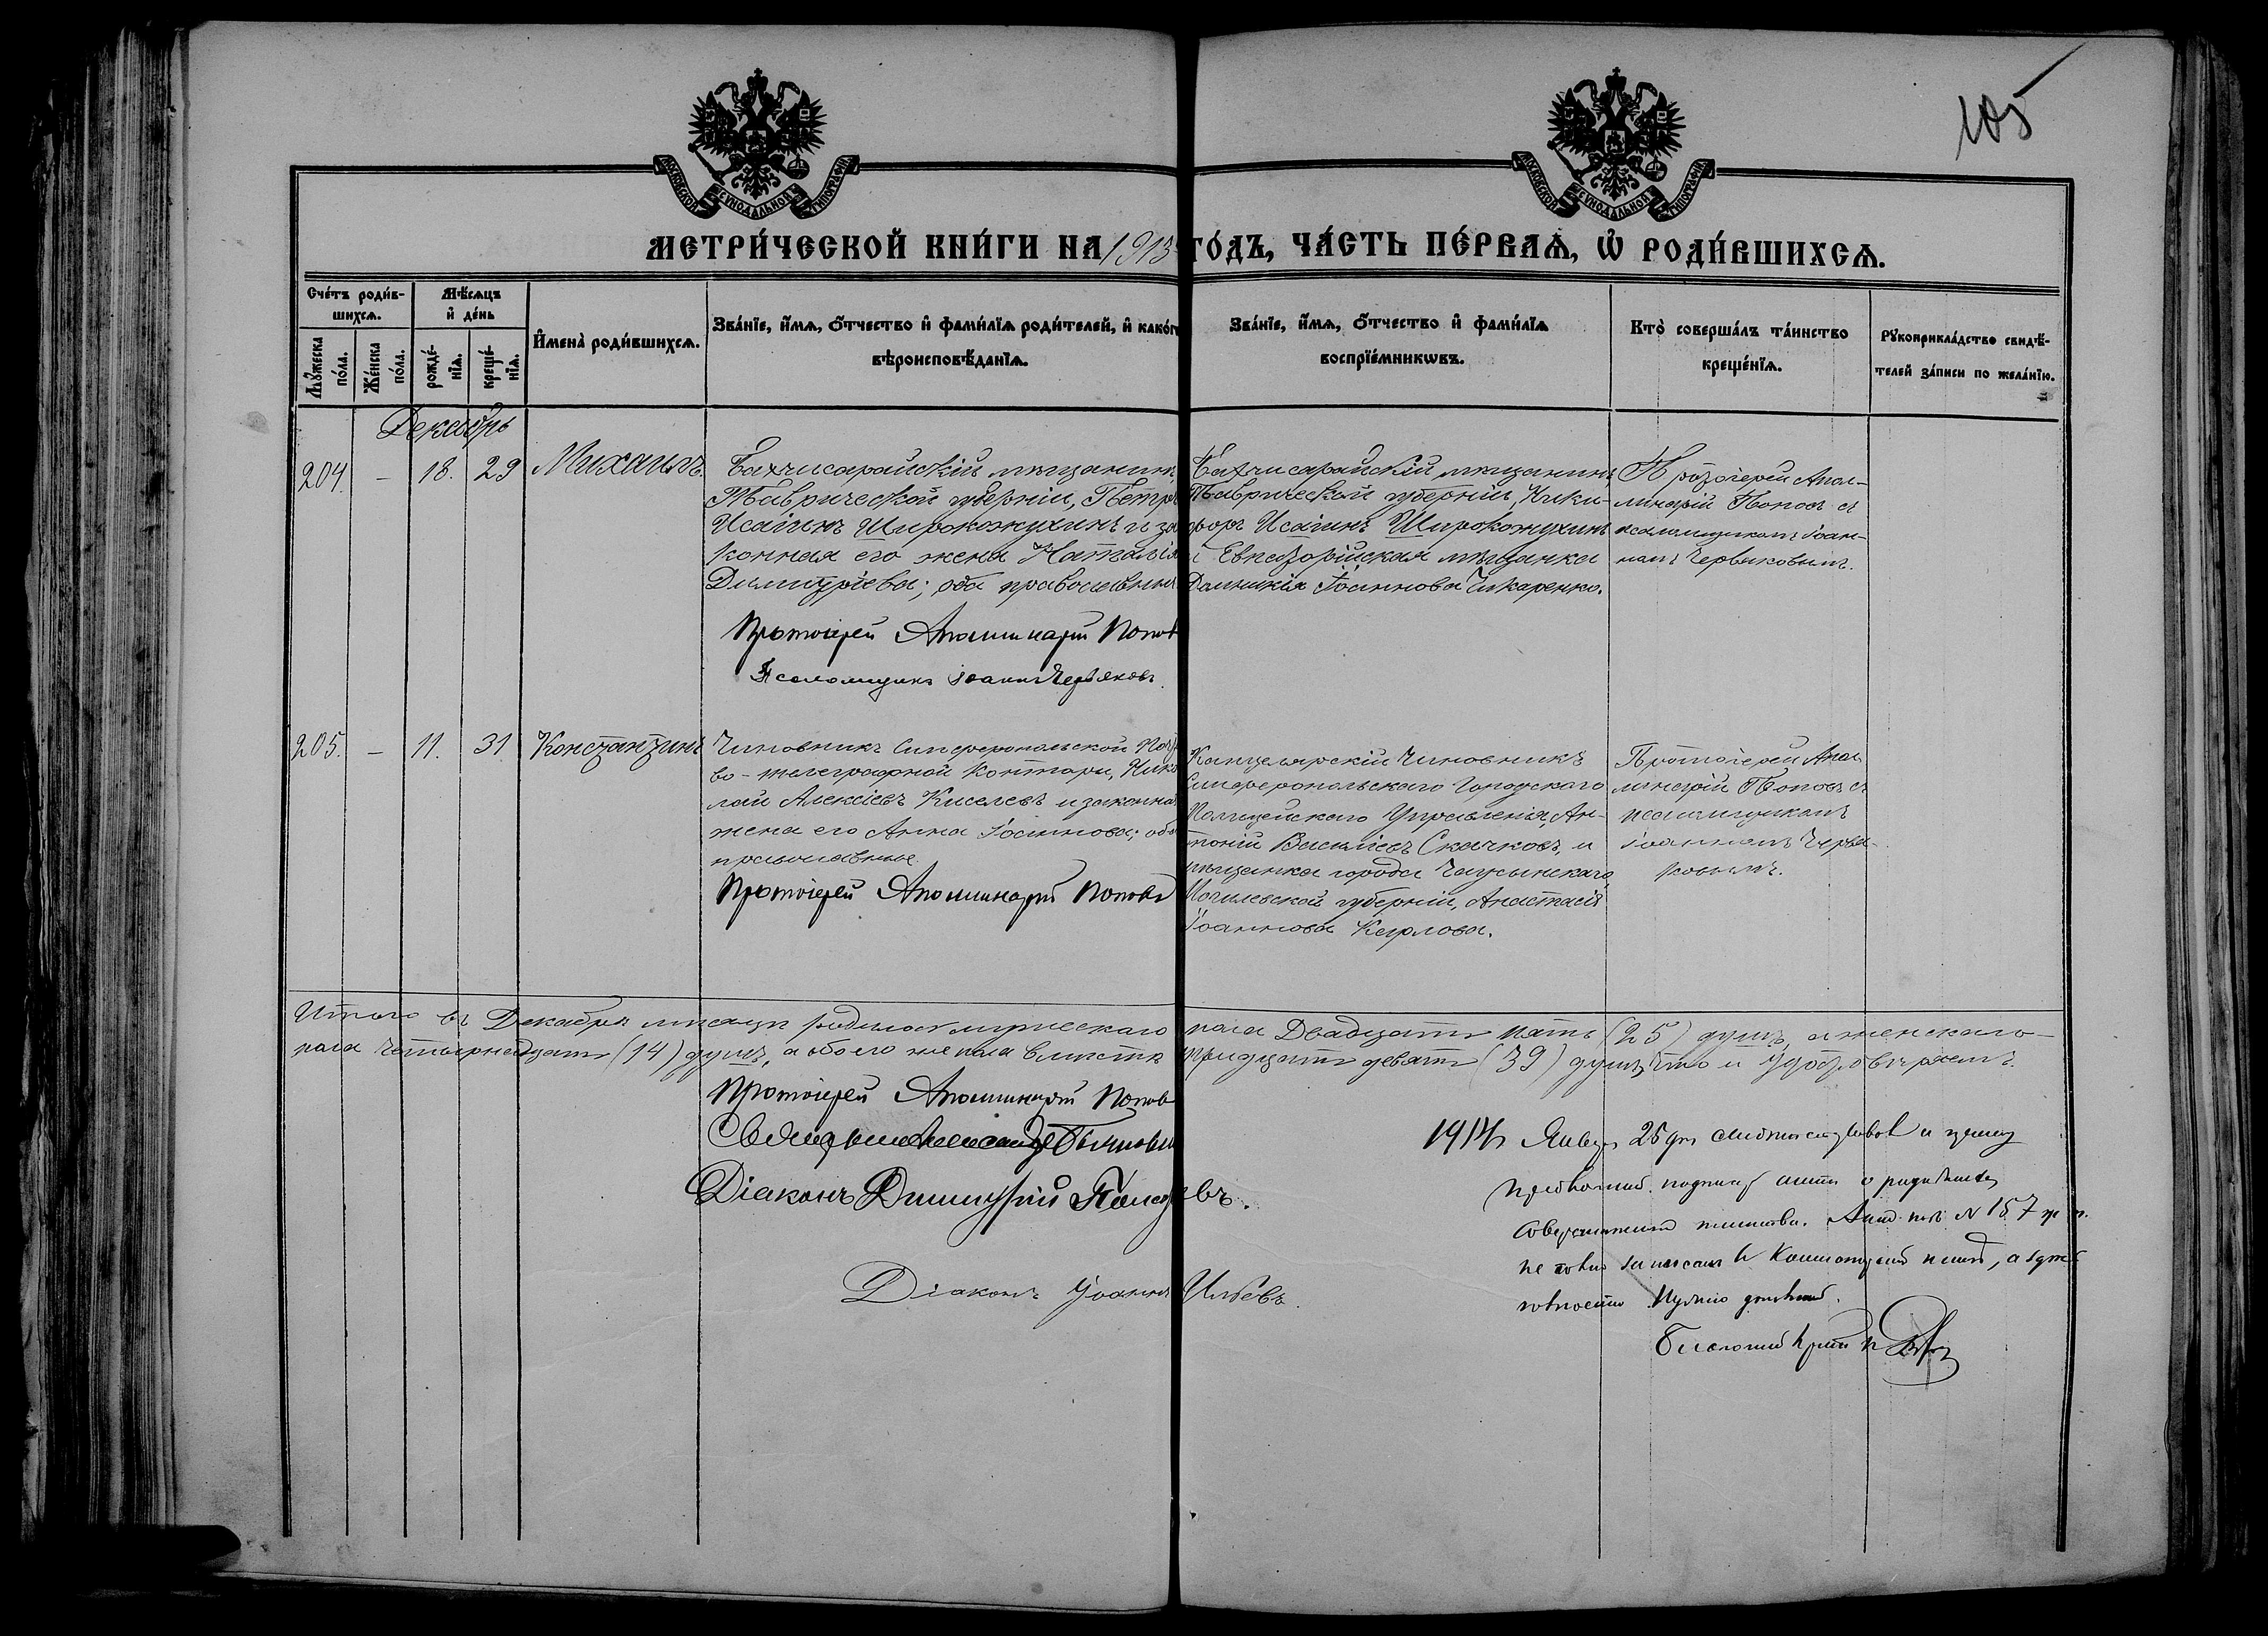 105
МОСКОВСКОЙ СѴНОДАЛЬНОЙ ТИПОГРАФІИ
МОСКОВСКОЙ СѴНОДАЛЬНОЙ ТИПОГРАФІИ
МЕТРИ́ЧЕСКОЙ КНИ́ГИ НА 1913 ГО́ДЪ, ЧА́СТЬ ПЕ́РВАѦ, Ѡ҆ РОДИ́ВШИХСѦ.
Сче́тъ роди́в-
шихсѧ.
Мѣ́сѧцъ
и҆ де́нь
Мꙋ́жеска
по́ла.
Же́нска
по́ла.
рожде́-
нїѧ.
креще́-
нїѧ.
И҆мена̀ роди́вшихсѧ.
Зва́нїе, и҆́мѧ, ѻ҆́тчество и҆ фами́лїѧ роди́телей, и҆ како́гѡ
вѣроисповѣ́данїѧ.
Зва́нїе, и҆́мѧ, ѻ҆́тчество и҆ фами́лїѧ
воспрїе́мникѡвъ.
Кто̀ соверша́лъ та́инство
креще́нїѧ.
Рꙋкоприкла́дство свидѣ́-
телей за́писи по жела́нїю.
Декабрь
204. - 18. 29 Михаилъ.
Бахчисарайскій мѣщанинъ,
Таврической губерніи, Петръ
Исаіинъ Широкожухинъ и за-
конная его жена Наталія
Димитріева; оба православные
Протоіерей Аполлинарій Попов
Псаломщикъ Іоаннъ Червяковъ.
Бахчисарайскій мѣщанинъ
Таврической губерніи, Ники-
форъ Исаіинъ Широкожухинъ
и Евпаторійская мѣщанка
Домникія Іоаннова Чикаренко.
Протоіерей Апол-
линарій Поповъ съ
псаломщикомъ Іоан-
номъ Червяковымъ.
205. - 11. 31. Константинъ
Чиновникъ Симферопольской Поч-
во-телеграфной Конторы, Нико-
лай Алексіевъ Киселевъ и законная
жена его Анна Іоаннова; оба
православные.
Протоіерей Аполлинарій Поповъ
Канцелярскій Чиновникъ
Симферопольскаго Городскаго
Полицейскаго Управленія, Ан-
тоній Василіевъ Скачковъ, и
мѣщанка города Чаусынскаго,
Могилевской губерніи, Анастасія
Іоаннова
Протоіерей Апол-
линарій Поповъ съ
псаломщикомъ
Іоанномъ Червя-
ковымъ.
Итого въ Декабрѣ мѣсяцѣ родилось мужескаго пола Двадцать пять (25) душъ, а женскаго
пола четырнадцать (14) душъ, а обоего же пола вмѣстѣ тридцать девять (39) душъ, что и удостовѣряемъ.
Протоіерей Аполлинарій Попов
Священникъ Александръ
Діаконъ Димитрій
Діаконъ Іоаннъ Ильевъ.
1914 Января 25 дня
подписи о
№ 157
не